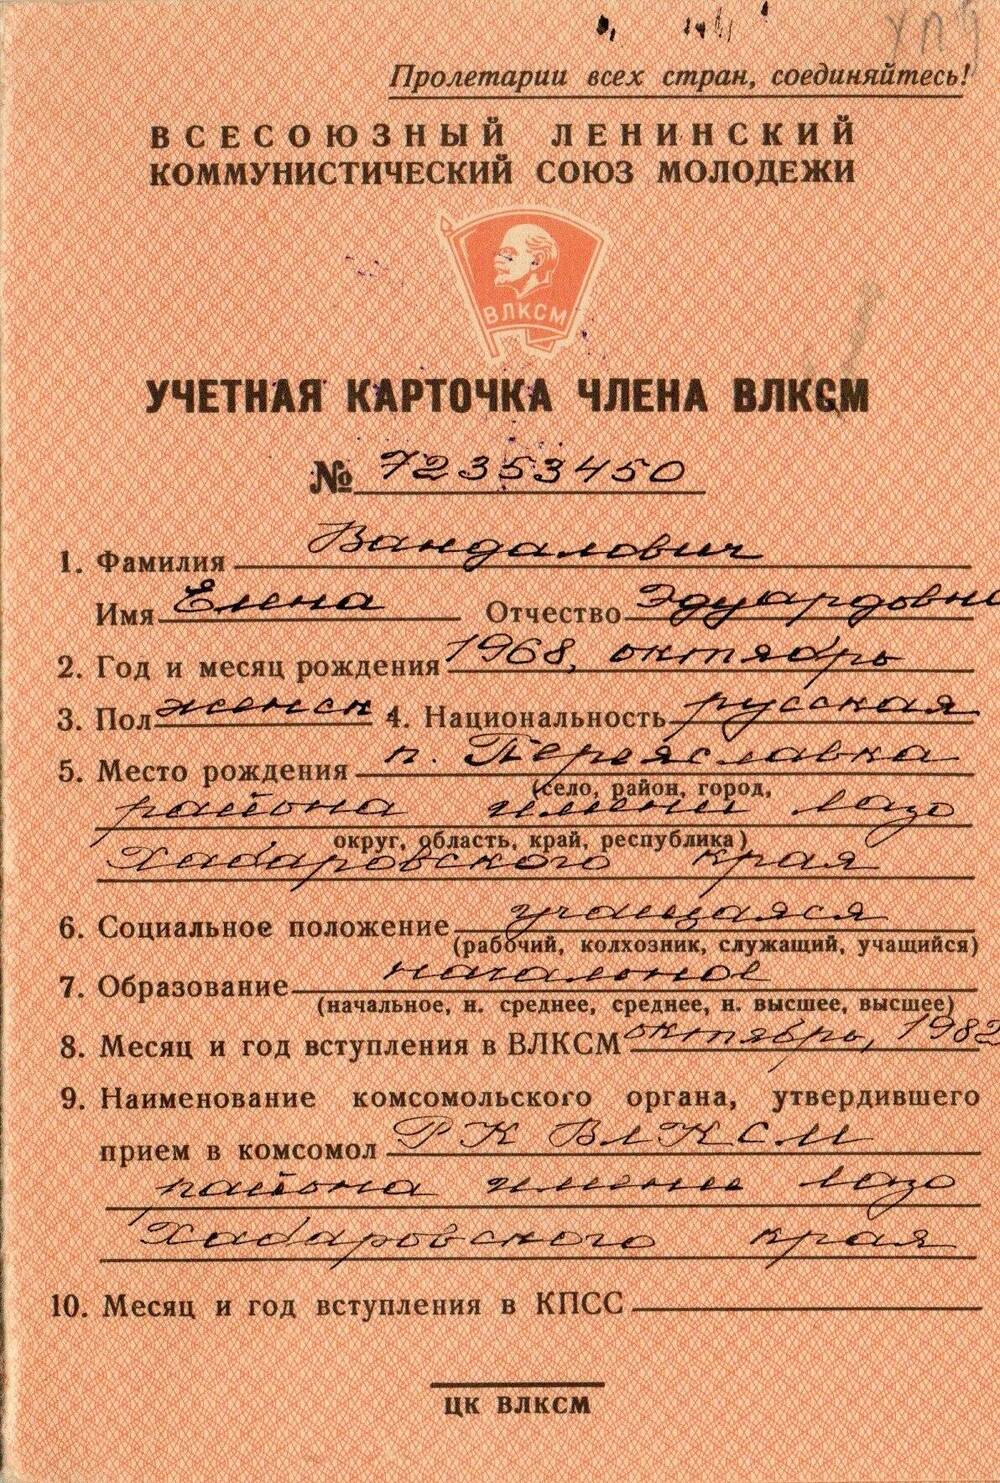 Пролетарии всех стран, соединяйтесь!
ВСЕСОЮЗНЫЙ ЛЕНИНСКИЙ
КОММУНИСТИЧЕСКИЙ СОЮЗ МОЛОДЕЖИ
ВЛКСМ
УЧЕТНАЯ КАРТОЧКА ЧЛЕНА ВЛКСМ
№ 72353450
1. Фамилия Вандалович
Имя Елена Отчество Эдуардовна
2. Год и месяц рождения 1968, октябрь
3. Пол женск 4. Национальность русская
5. Место рождения п. Переяславка
(село, район, город,
района имени Лазо
округ, область, край, республика)
Хабаровского края
6. Социальное положение учащаяся
(рабочий, колхозник, служащий, учащийся)
7. Образование начальное
(начальное, н. среднее, среднее, н. высшее, высшее)
8. Месяц и год вступления в ВЛКСМ октябрь, 1982
9. Наименование комсомольского органа, утвердившего
прием в комсомол РК ВЛКСМ
района имени Лазо
Хабаровского края
10. Месяц и год вступления в КПСС
ЦК ВЛКСМ